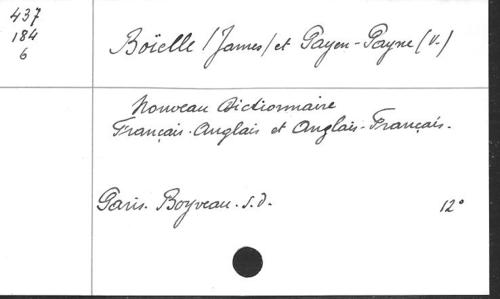 437
184
6
Boïelle (James) et Payen-Payne (V.)
Nouveau Dictionnaire
Français-Anglais et Anglais-Français.
Paris. Boyveau. s.d. 12°